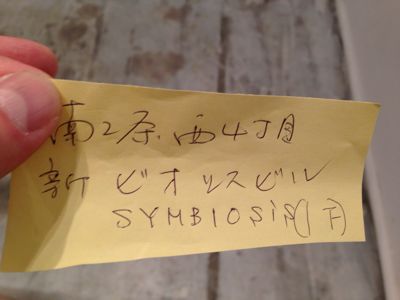 南2条.西4丁目
新 ビオリスビル
SYMBIOSiS(1F)